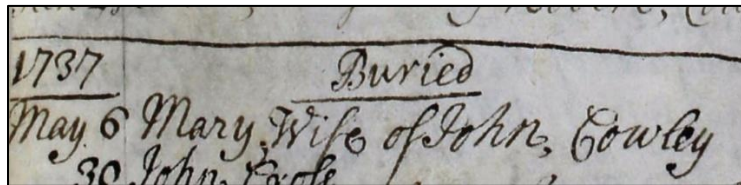 1737 Buried
May 6 Mary, Wife of John, Cowley
30 John